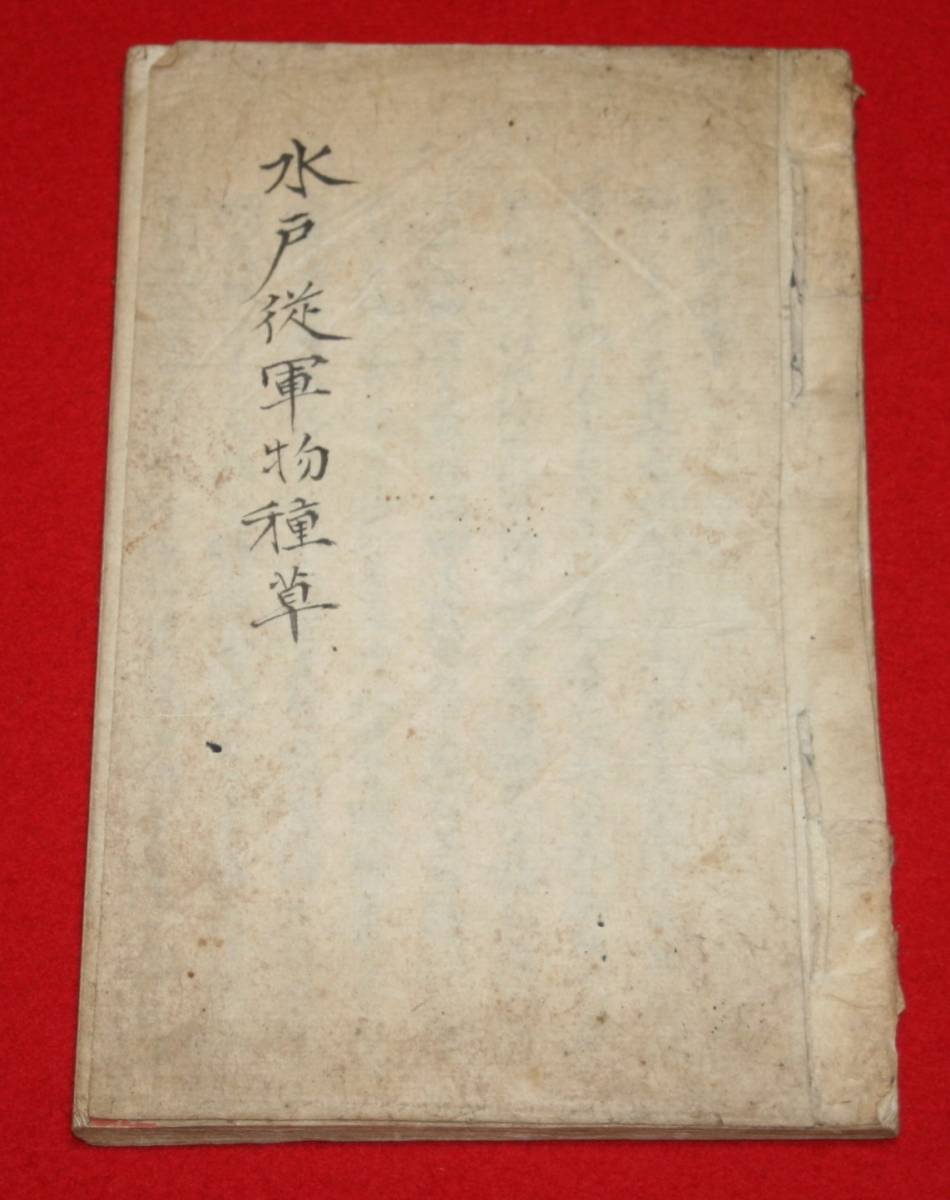 水戸従軍物種草